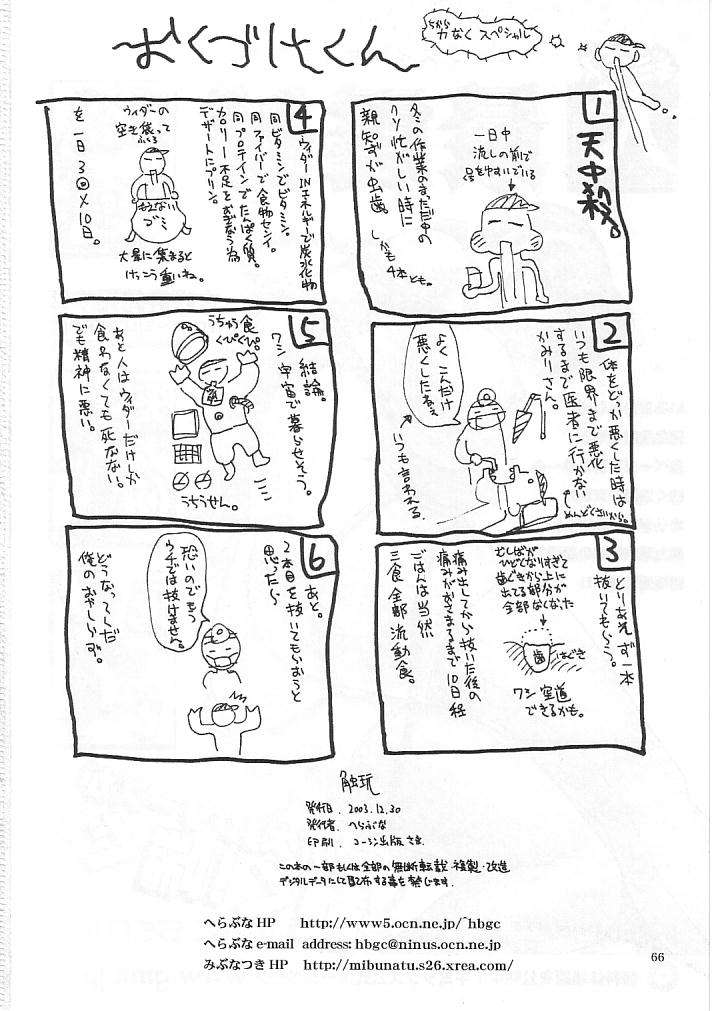 おくづけくん
ちから
力なくスペシャル
1
天中殺。
一日中
流しの前で
冬の作業のまっただ中の
クソ忙がしい時に
親知らずが虫歯。
しかも4本とも。
2
体をどっか悪くした時は
いつも限界まで悪化
するまで医者に行かない
かみりさん。
めんどくさいから。
よくこんだけ
悪くしたねぇ
いつも言われる
3
とりあえず一本
抜いてもらう。
ひどすぎて
歯ぐきから上に
出てる部分が
全部なくなった
歯
はぐき
ワシ空道
できるかも。
痛み出してから抜いた後の
痛みがおさまるまで10日経
ごはんは当然
三食全部流動食。
4
ウィダーINエネルギーで炭水化物
同ビタミンでビタミン。
同ファイバーで食物センイ。
同プロテインでたんぱく質。
カロリー不足をおぎなう為
デザートにプリン。
ウィダーの
空き袋って
もえない
ゴミ
大量に集まると
けっこう重いね。
を一日3回×10日。
5
結論。
ワシ宇宙で暮らせそう。
うちゅう食
くぴくぴ。
うちうせん。
あと人はウィダーだけしか
食わなくても死なない。
でも精神に悪い。
6
あと。
2本目を抜いてもらおうと
思ったら
恐いのでもう
ウチでは抜けません。
どうなってんだ
俺のおやしらず。
触玩
発行日. 2003.12.30
発行者. へらぶな
印刷. コーシン出版さま
この本の一部もしくは全部の無断転載・複製・改造
デジタルデータにして配布する事を禁じます.
へらぶなHP http://www5.ocn.ne.jp/~hbgc
へらぶな e-mail address: hbgc@ninus.ocn.ne.jp
みぶなつきHP http://mibunatu.s26.xrea.com/
66